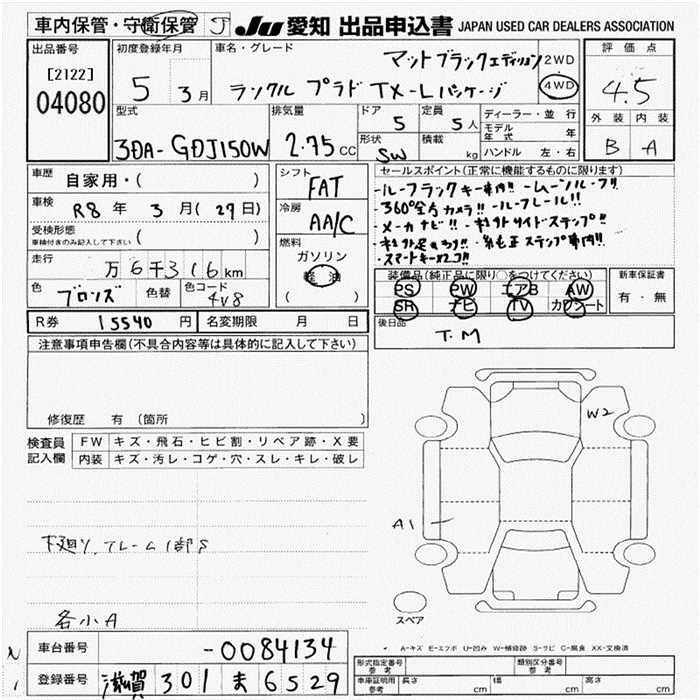 車内保管・守衛保管 J JU 愛知 出品申込書 JAPAN USED CAR DEALERS ASSOCIATION
出品番号 初度登録年月 車名・グレード 評価点
[2122] マットブラックエディション 2WD
04080 5 3月 ランクル プラド TX-Lパッケージ 4WD 4.5
型式 排気量 ドア 定員 ディーラー・並行 外装 内装
5 5人 モデル年式 年
3DA-GDJ150W 2.75CC 形状 積載 B A
SW kg ハンドル 左・右
車歴 自家用・( ) シフト セールスポイント(正常に機能するものに限ります)
FAT
・360°全方カメラ!! ・ルーフレール!!
車検 R8年 3月(27日) 冷房
・メーカナビ!!
受検形態 AA/C
車検付きのみ記入して下さい ( )
燃料 ・スマートキー×2コ!!
走行 ガソリン
万6千316km 軽油 装備品(純正品に限り○をつけてください) 新車保証書
色 ブロンズ 色替 色コード 4V8 ( ) PS PW エアB AW 有・無
SR ナビ TV カワシート
R券 15540円 名変期限 月 日 後日品
T.M
注意事項申告欄(不具合内容等は具体的に記入して下さい)
W2
修復歴 有 (箇所 )
検査員 FW キズ・飛石・ヒビ割・リペア跡・X要
記入欄 内装 キズ・汚レ・コゲ・穴・スレ・キレ・破レ
A1
下廻り、フレーム1部S
各小A スペア
A-キズ E-エクボ U-凹み W-補修跡 S-サビ C-腐食 XX-交換済
車台番号 -0084134
形式指定番号 参考 類別区分番号 参考
登録番号 滋賀 301 ま 6529
車庫証明用 参考 長さ cm 幅 cm 高さ cm